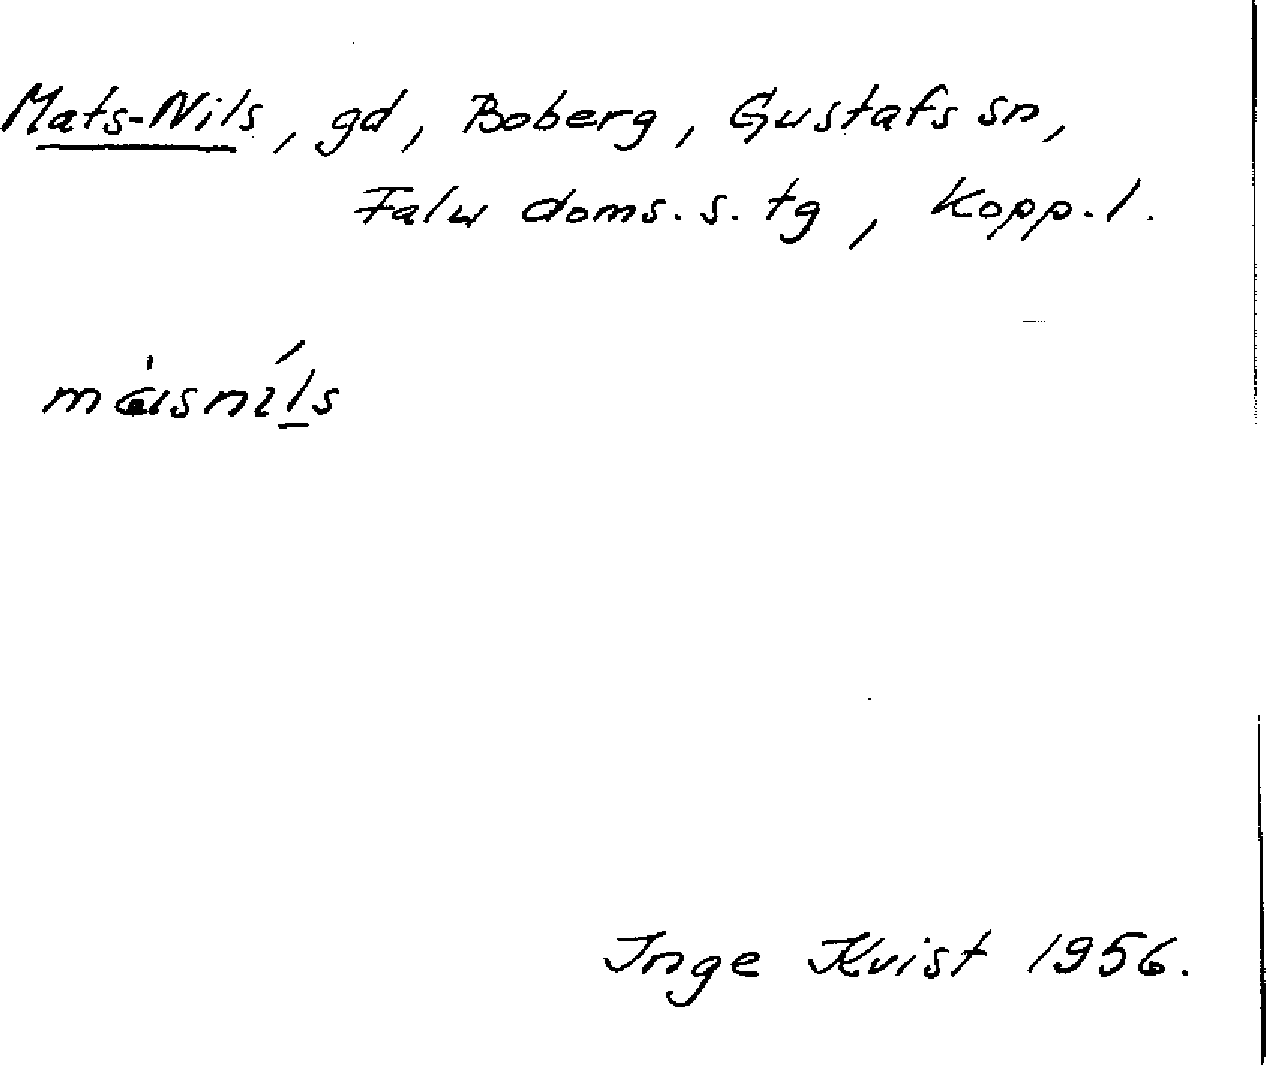 Mats-Nils, gd, Boberg, Gustafs sn,
Falu doms. s. tg, Kopp. l.
másníls
Inge Kvist 1956.